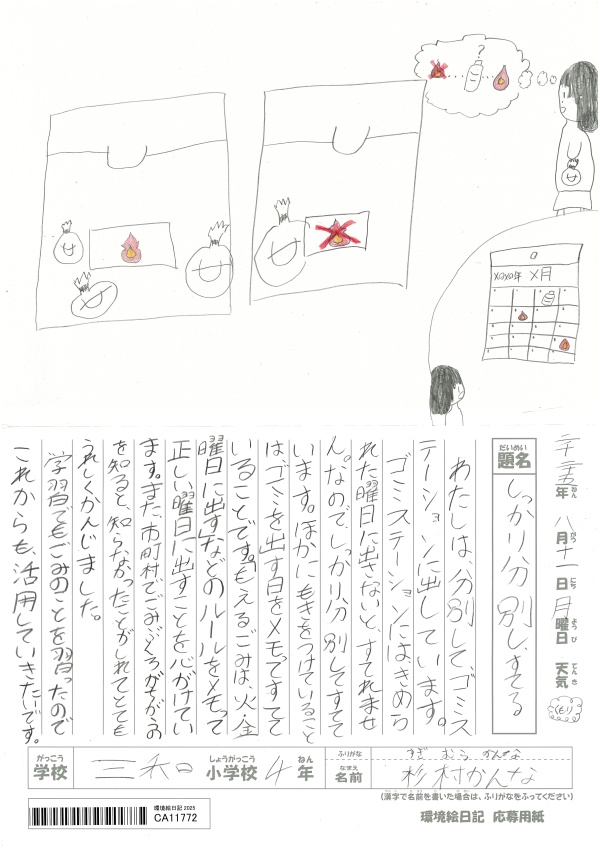 ?
xoxo年 X月
二十五年 八月十一日 月曜日 天気 くもり
ねん がつ にち ようび てんき
だいめい
題名
しっかり分別し、すてる
わたしは、分別して、ゴミス
テーションに出しています。
ゴミステーションにはきめら
れた曜日に出さないと、すてれませ
ん。なので、しっかり分別してすてて
います。ほかにもきをつけていること
は、ゴミを出す日をメモってすてて
いることです。「もえるごみは、火・金
曜日に出す」などのルールをメモって
正しい曜日に出すことを心がけてい
ます。また、市町村でごみぶくろがちがう
を知ると、知らなかったことがしれてとても
うれしくかんじました。
学習でもごみのことを習ったので
これからも、活用していきたいです。
がっこう しょうがっこう ねん
学校 三和 小学校 4年
ふりがな すぎ むら かんな
なまえ
名前 杉村かんな
(漢字で名前を書いた場合は、ふりがなをふってください)
環境絵日記 2025
CA11772
環境絵日記 応募用紙